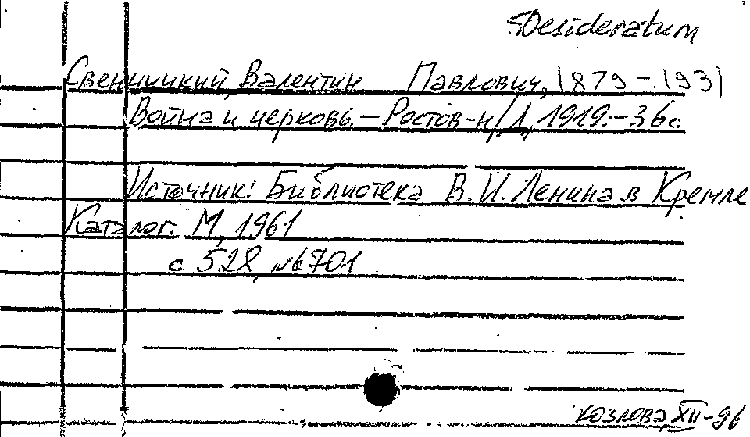 Desideratum
Свенцицкий, Валентин Павлович, 1879-1931
Война и церковь.-Ростов-н/Д, 1919.-36с.
Источник: Библиотека В.И.Ленина в Кремле
Каталог. М, 1961
с 528, №6701
Козлова, XII-96